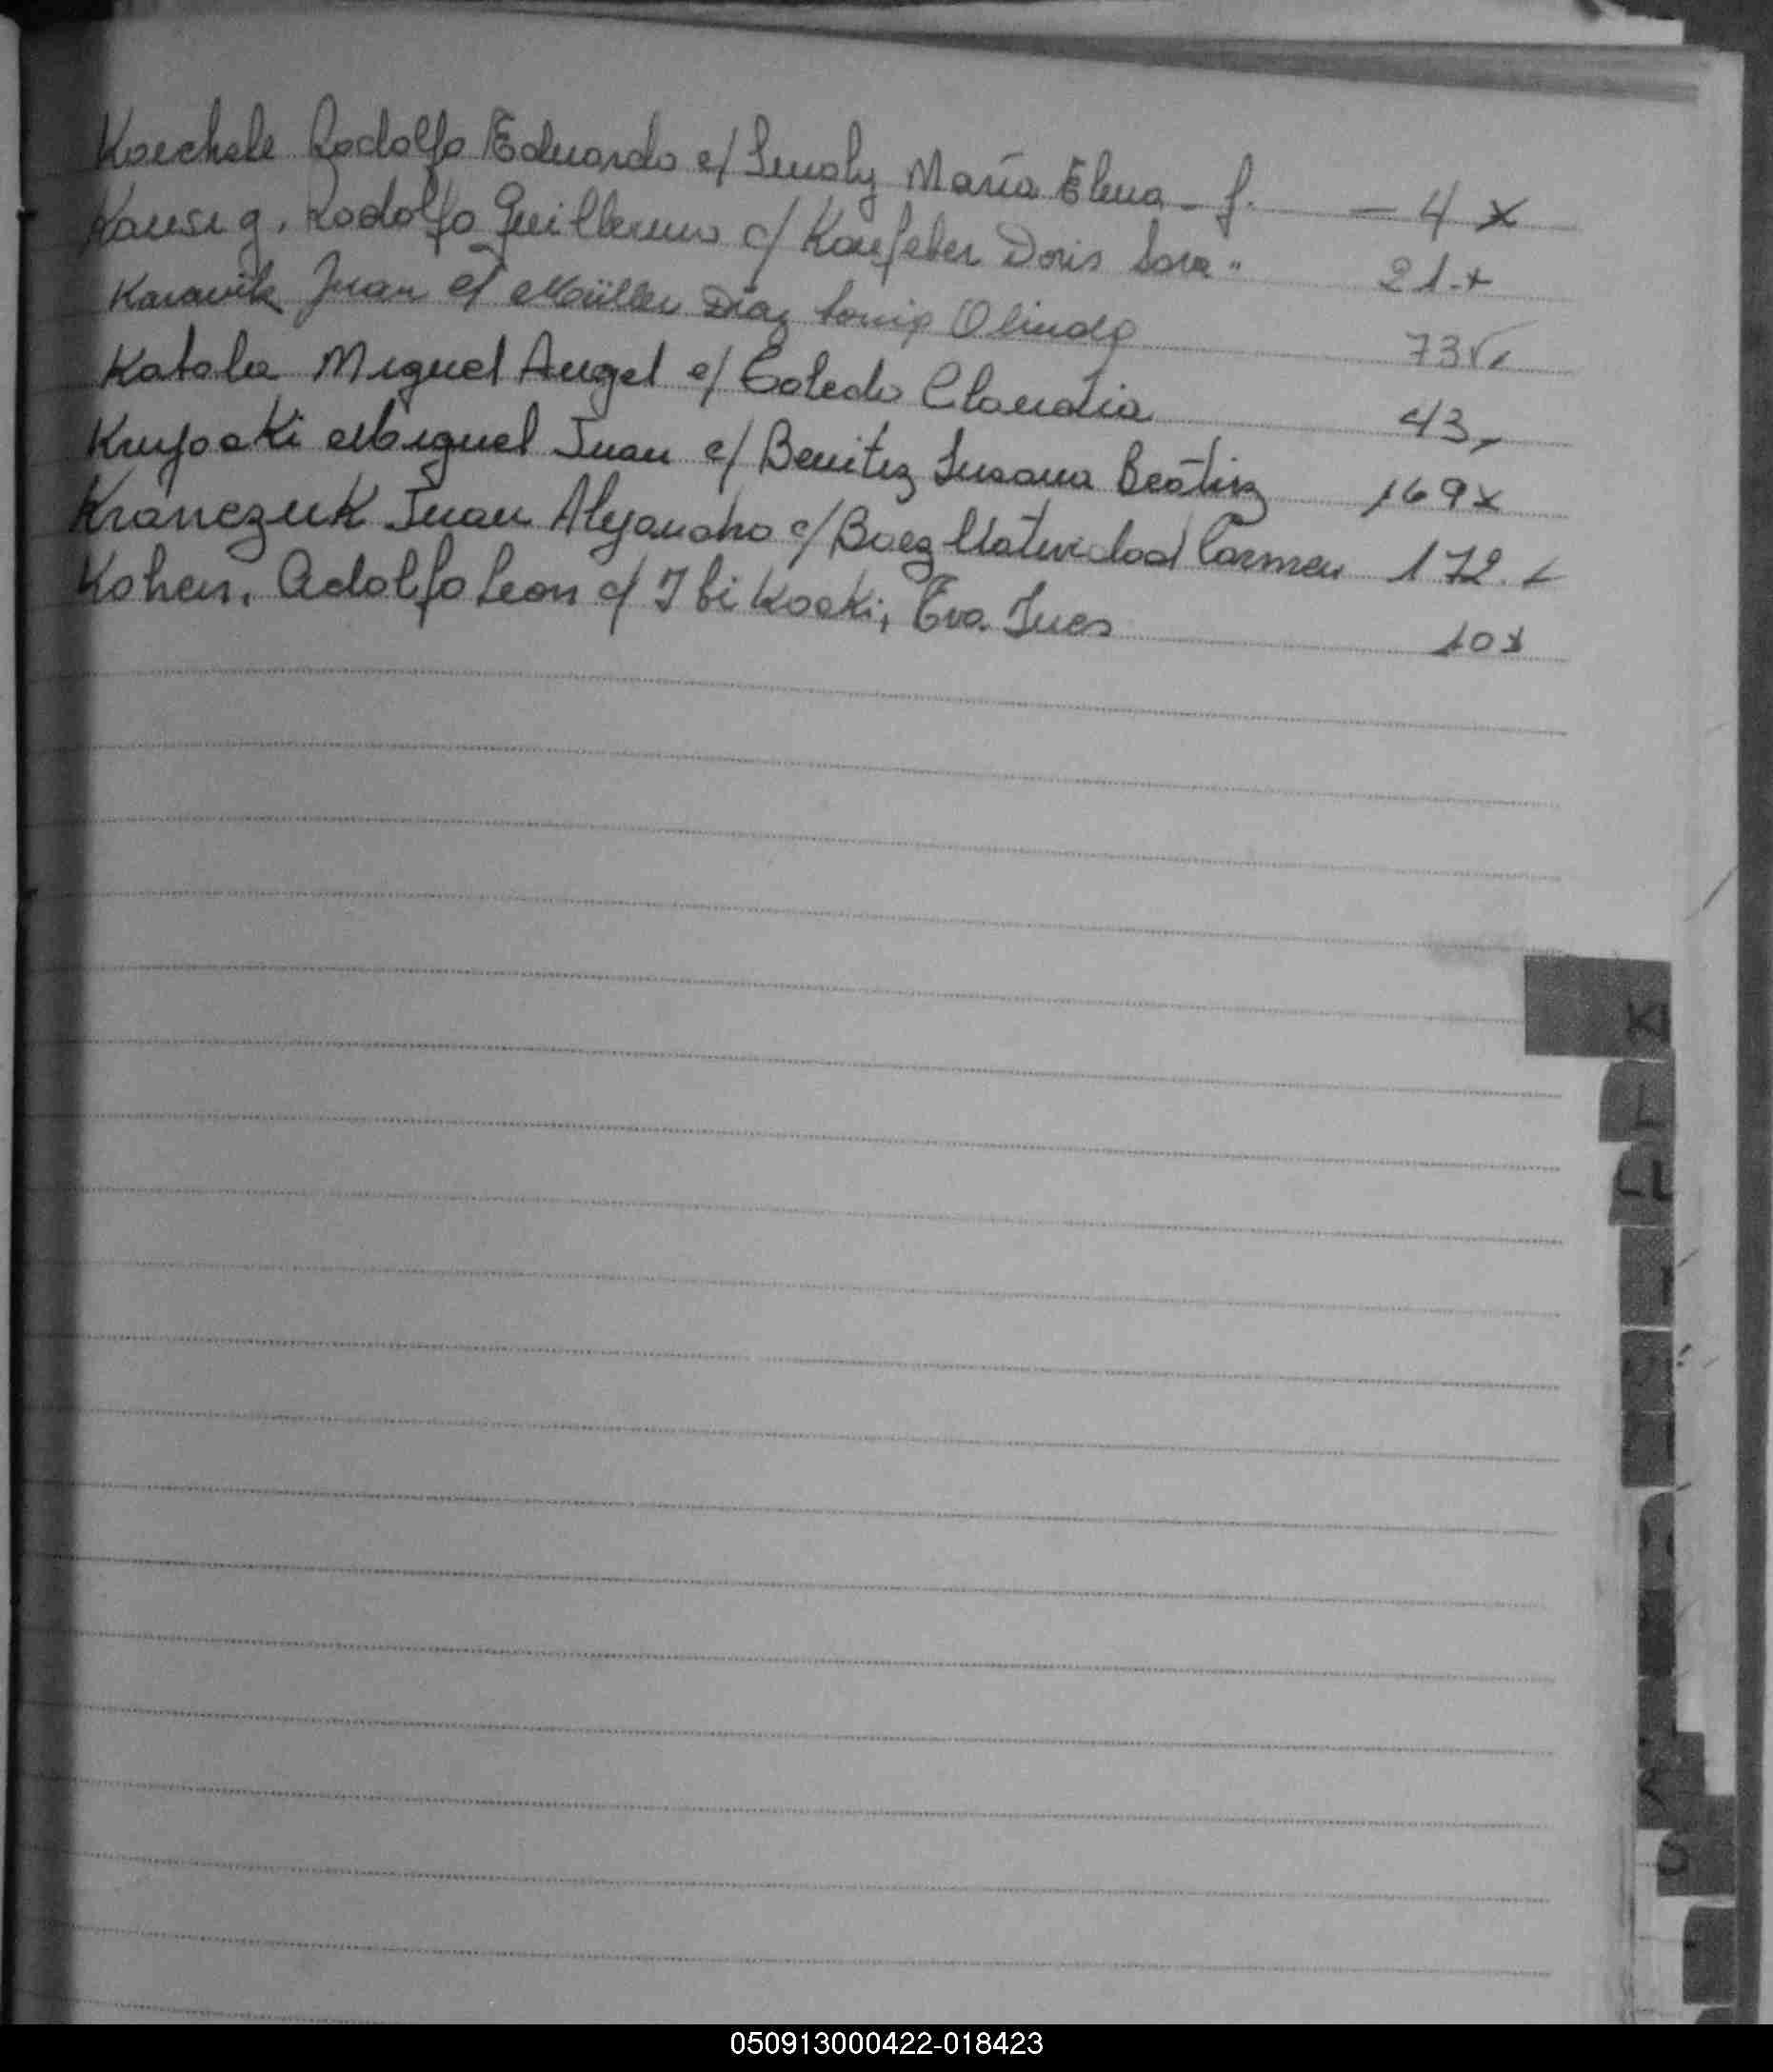 Koechele Rodolfo Eduardo c/ Sunoly María Elena - f. - 4 x
Kausi g. Rodolfo Guillermo c/ Kaufeber Doris Sara " 21.+
Karavik Juan c/ Müller Díaz Sonia Olinda 73
Katola Miguel Angel c/ Toledo Claudia 43
Krupoki Miguel Juan c/ Benitez Susana Beatriz 169 x
Kranczuk Juan Alejandro c/ Baez Natividad Carmen 172.
Kohen, Adolfo Leon c/ Ibikoski, Eva Ines 10 x
K
L
LL
050913000422-018423